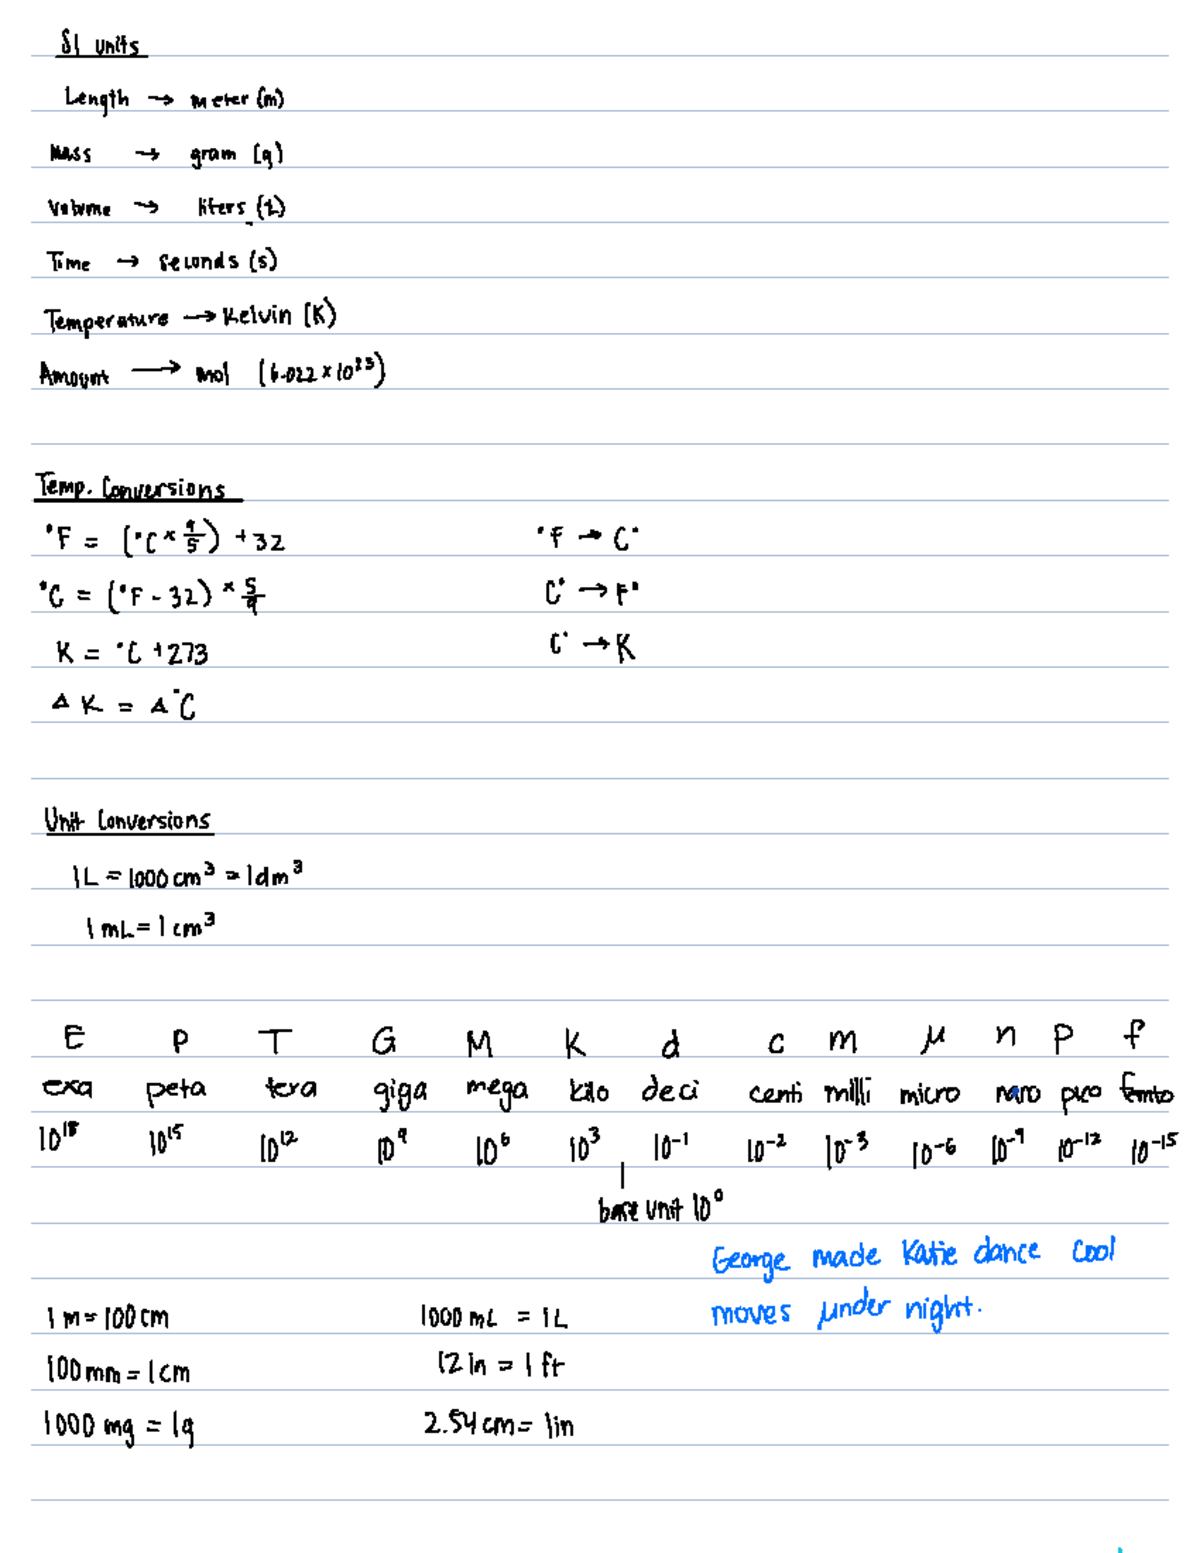 SI units
Length → meter (m)
Mass → gram (g)
Volume → liters (L)
Time → seconds (s)
Temperature → Kelvin (K)
Amount → mol (6.022 × 10²³)
Temp. Conversions
°F = (°C × 9/5) + 32 °F → C°
°C = (°F - 32) × 5/9 C° → F°
K = °C + 273 C° → K
Δ K = Δ °C
Unit Conversions
1L = 1000 cm³ = 1dm³
1 mL = 1 cm³
E P T G M K d c m μ n p f
exa peta tera giga mega kilo deci centi milli micro nano pico femto
10¹⁸ 10¹⁵ 10¹² 10⁹ 10⁶ 10³ 10⁻¹ 10⁻² 10⁻³ 10⁻⁶ 10⁻⁹ 10⁻¹² 10⁻¹⁵
base unit 10⁰
George made Katie dance cool
moves μnder night.
1 m = 100 cm 1000 mL = 1L
100 mm = 1 cm 12 in = 1 ft
1000 mg = 1g 2.54 cm = 1in